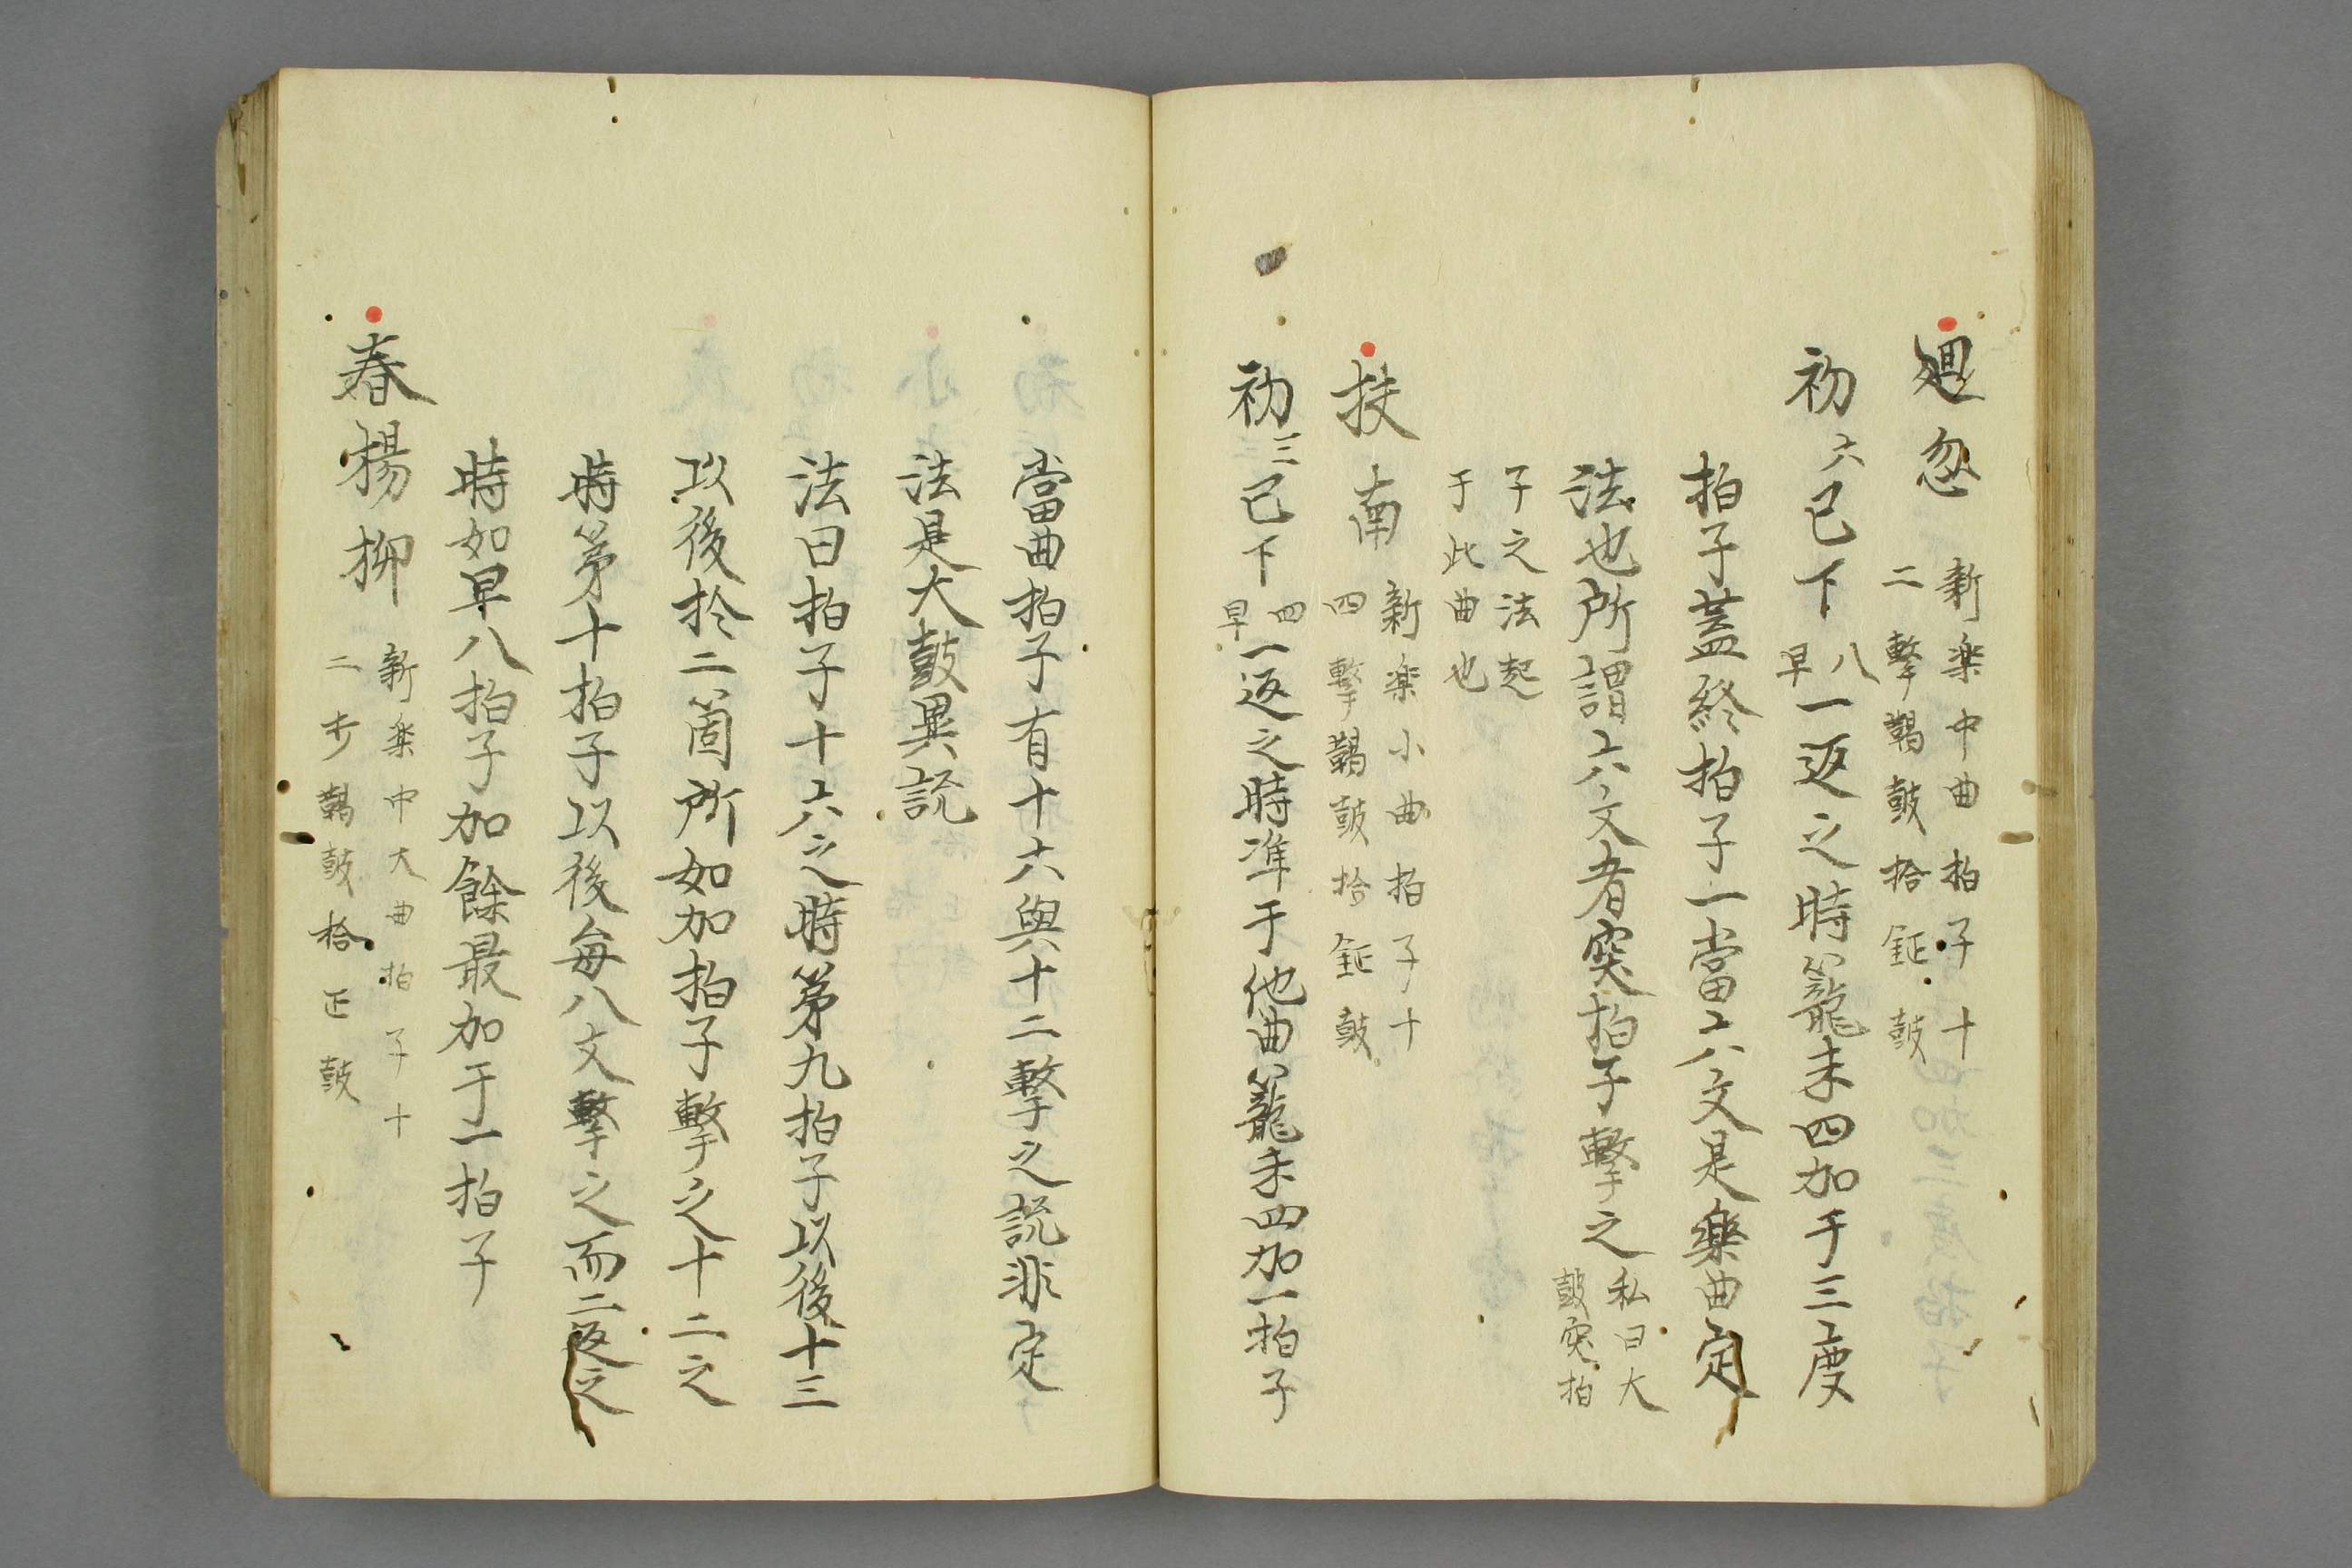 廻忽 新楽中曲拍子十
二擊鞨鼓拾鉦鼓
初六已下八早一返之時籠末四加于三度
拍子蓋終拍子一當六文是樂曲定
法也所謂六文者突拍子擊之私曰大
鼓突拍
子之法起
于此曲也
扶南 新楽小曲拍子十
四擊鞨鼓拾鉦鼓
初三已下四早一返之時準于他曲籠末四加一拍子
當曲拍子有十六與十二擊之説非定
法是大鼓異説
法曰拍子十六之時第九拍子以後十三
以後於二箇所如加拍子擊之十二之
時第十拍子以後每八文擊之而二返之
時如早八拍子加餘最加于一拍子
春楊柳 新楽中大曲拍子十
二歩鞨鼓拾正鼓